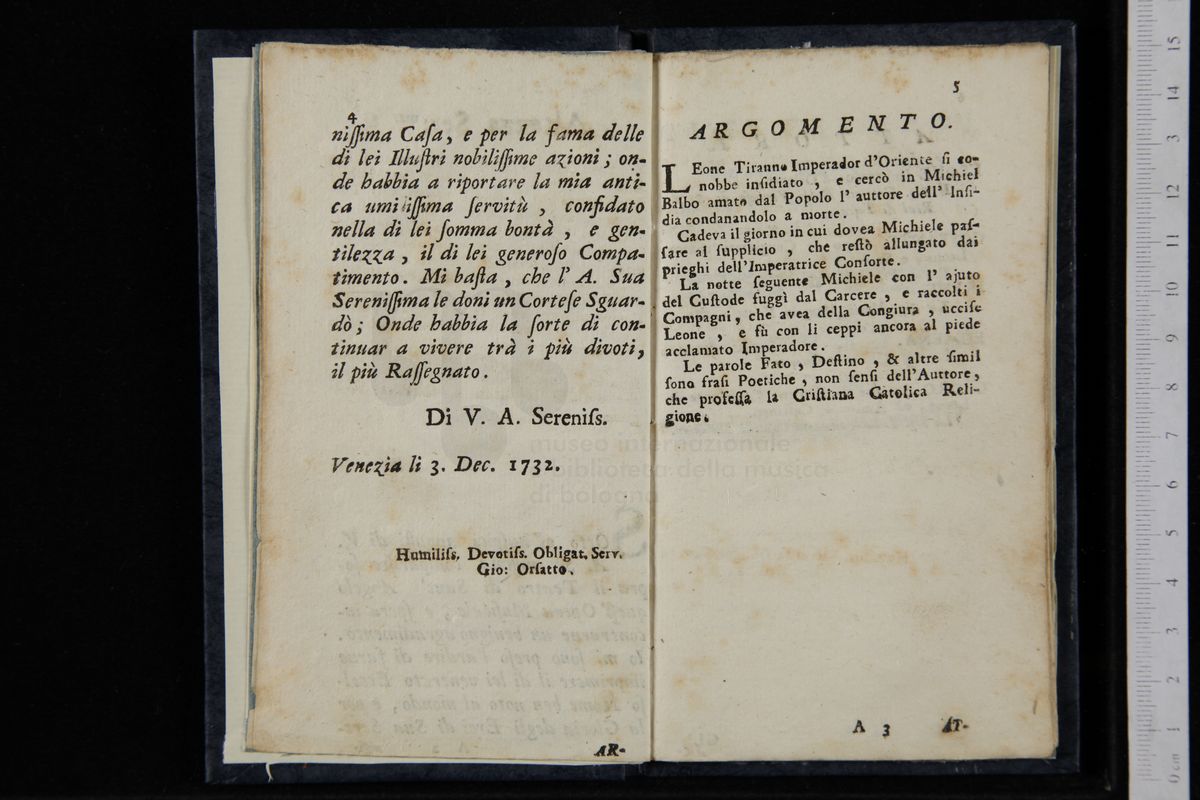 4
niſſima Caſa, e per la fama delle
di lei Illuſtri nobiliſſime azioni; on-
de habbia a riportare la mia anti-
ca umiliſſima ſervitù, confidato
nella di lei ſomma bontà, e gen-
tilezza, il di lei generoſo Compa-
timento. Mi baſta, che l' A. Sua
Sereniſſima le doni un Corteſe Sguar-
dò; Onde habbia la ſorte di con-
tinuar a vivere trà i più divoti,
il più Raſſegnato.
Di V. A. Sereniſs.
Venezia li 3. Dec. 1732.
Humiliſs. Devotiſs. Obligat. Serv.
Gio: Orſatto.
AR-
5
ARGOMENTO.
LEone Tiranno Imperador d'Oriente ſi co-
nobbe inſidiato, e cercò in Michiel
Balbo amato dal Popolo l' auttore dell' Inſi-
dia condanandolo a morte.
Cadeva il giorno in cui dovea Michiele paſ-
ſare al ſupplicio, che reſtò allungato dai
prieghi dell'Imperatrice Conſorte.
La notte ſeguente Michiele con l' ajuto
del Cuſtode fuggì dal Carcere, e raccolti i
Compagni, che avea della Congiura, ucciſe
Leone, e fù con li ceppi ancora al piede
acclamato Imperadore.
Le parole Fato, Deſtino, & altre ſimil
ſono fraſi Poetiche, non ſenſi dell'Auttore,
che profeſſa la Criſtiana Catolica Reli-
gione.
A 3 AT-
museo internazionale
biblioteca della musica
di bologna
0 cm 1 2 3 4 5 6 7 8 9 10 11 12 13 14 15